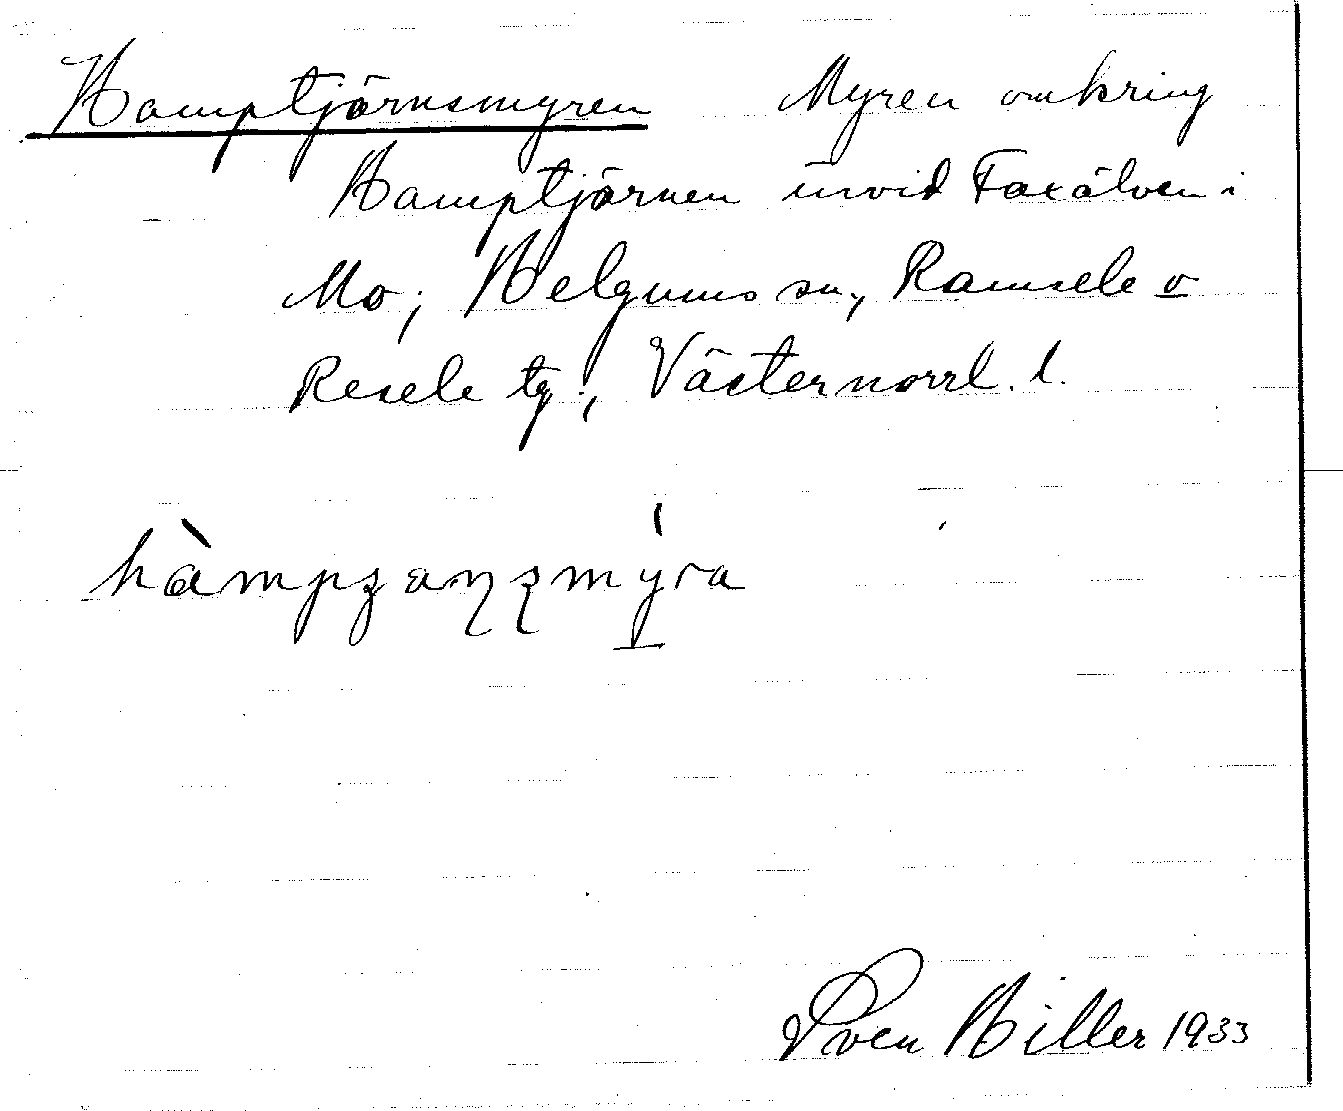 Hamptjärnsmyren Myren omkring
Hamptjärnen invid Faxälven i
Mo; Helgums sn, Ramsele o
Resele tg., Västernorrl. l.
Sven Hiller 1933